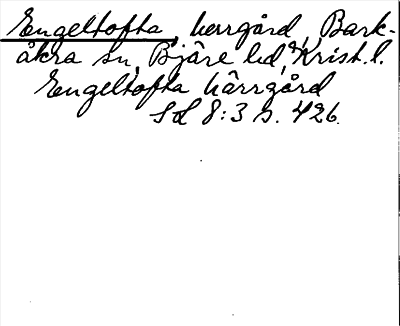 Engeltofta, herrgård, Bark-
åkra sn, Bjäre hd, Krist. l.
Engeltofta härrgård
Sd 8:3 s. 426.